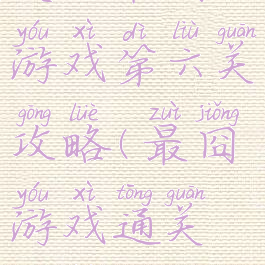 yóu xì dì liù guān
游戏第六关
gōng lüè zuì jiǒng
攻略(最囧
yóu xì tōng guān
游戏通关